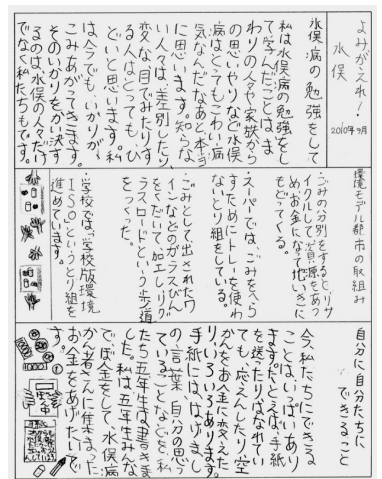 よみがえれ！
水俣
2010年9月
水俣病の勉強をして
私は水俣病の勉強をし
て学んだことは、ま
わりの人々や家族から
の思いやりなど水俣
病はとってもこわい病
気なんだなあと本当
に思います。知らな
い人々は、差別したり
変な目でみたりす
る人はとっても、ひ
どいと思います。私
は今でも、いかりが、
こみあがってきます。
そのいかりをかい決す
るのは水俣の人々だけ
でなく私たちもです。
環境モデル都市の取組み
・ごみの分別をすると、リサ
イクルして資源をあつ
めお金になって地いきに
もどってくる。
・スーパーでは、ごみをへら
すためにトレーを使わ
ないとり組をしている。
・ごみとして出されたワ
インなどのガラスびん
をくだいて、加工しリグ
ラスロードという歩道
をつくった。
・学校では、学校版環境
ISOというとり組を
進めています。
自分に自分たちに
できること
今、私たちにできる
ことはいっぱいあり
ます。たとえば、手紙
を送ったりはなれてい
ても、応えんしたり、空
かんをお金に変えた
り、いろいろあります。
手紙には、はげまし
の言葉、自分の思っ
ていることなどを、私
たち五年生は書きま
した。私は五年生みんな
でぼ金をして、水俣病
かん者さんに集まった
お金をあげたいで
す。